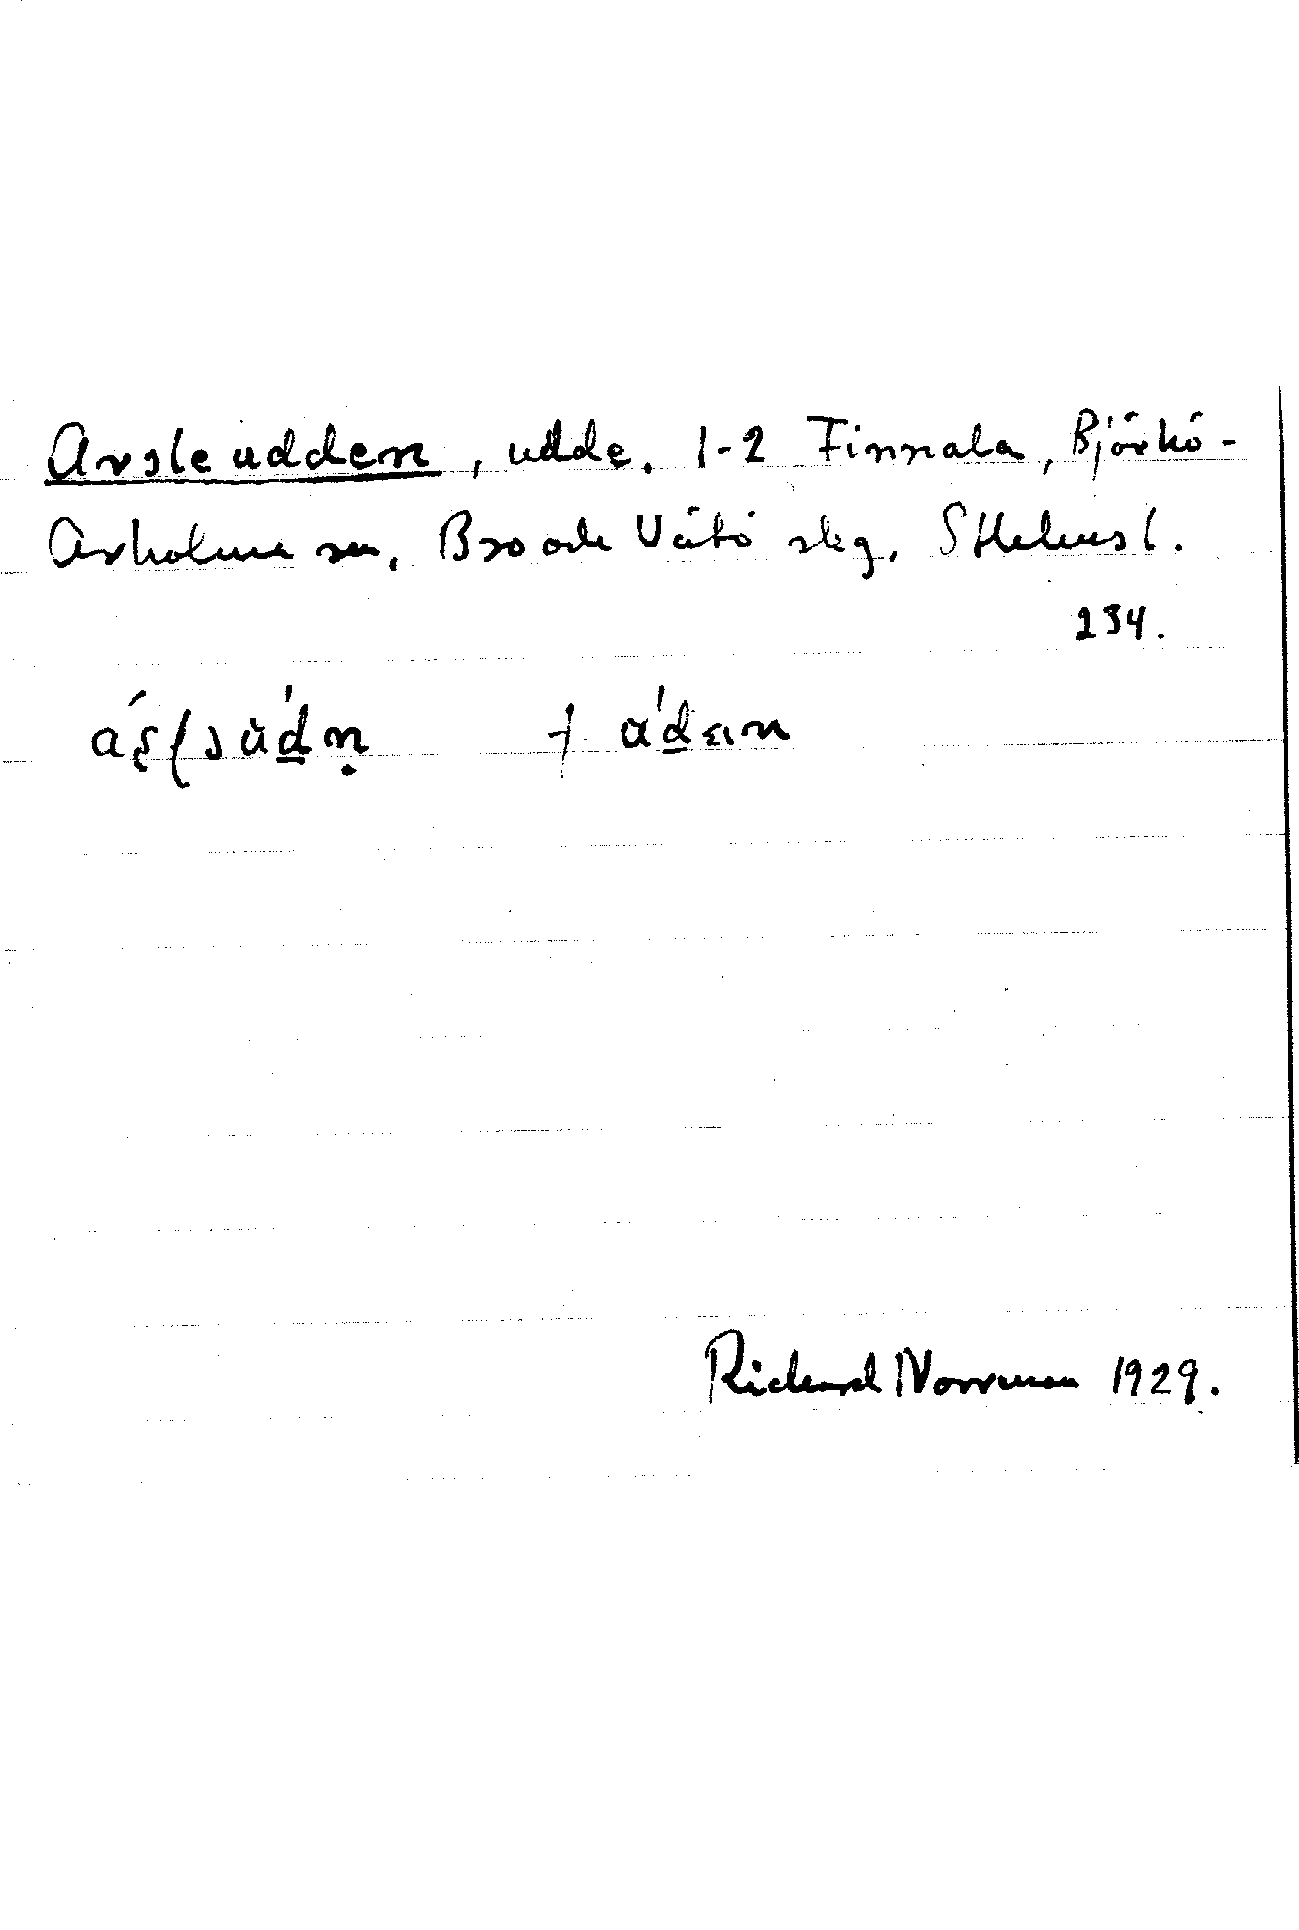 Arsleudden, udde. 1-2 Finnala, Björkö-
Arholma sn, Bro och Vätö skg, Sthlms l.
234.
+
Richard Norrman 1929.